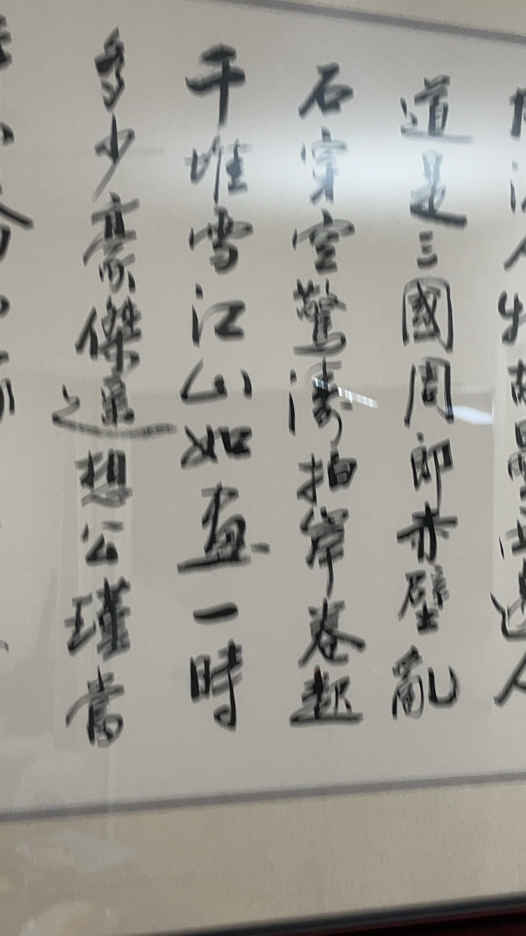 人物故壘西邊人
道是三國周郎赤壁亂
石穿空驚濤拍岸卷起
千堆雪江山如畫一時
多少豪傑遙想公瑾當